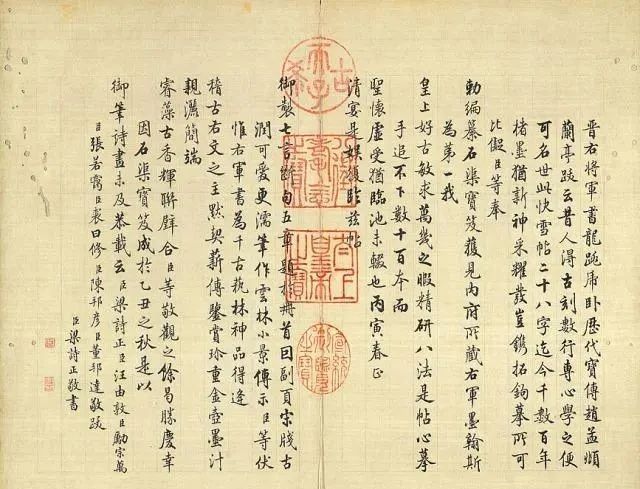 晉右將軍書龍跳虎卧歷代寶傳趙孟頫
蘭亭跋云昔人得古刻數行專心學之便
可名世此快雪帖二十八字迄今千數百年
楮墨猶新神采耀發豈鐫拓鉤摹所可
比儗臣等奉
勅編纂石渠寶笈獲見內府所藏右軍墨翰斯
為第一我
皇上好古敏求萬幾之暇精研八法是帖心摹
手追不下數十百本而
聖懷虛受猶臨池未輟也丙寅春正
清宴是娛復臨茲帖
御製七言斷句五章題於冊首回副頁宋牋古
潤可愛更濡筆作雲林小景傳示臣等伏
惟右軍書為千古藝林神品得逢
稽古右文之主默契薪傳鑒賞珍重金壺墨汁
親灑簡端
睿藻古香輝聯璧合臣等敬觀之餘曷勝慶幸
因石渠寶笈成於乙丑之秋是以
御筆詩畫未及恭載云臣梁詩正臣汪由敦臣勵宗萬
臣張若靄臣裘曰修臣陳邦彥臣董邦達敬跋
臣梁詩正敬書
古希天子
太上皇帝之寶
宣統御覽之寶